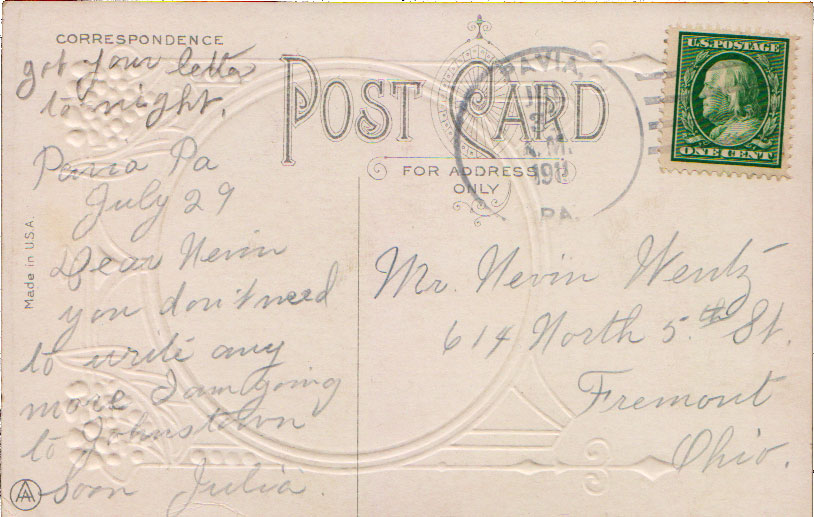 CORRESPONDENCE
got your letter
to night.
Pavia Pa
July 29
Dear Nevin
you don't need
to write any
more I am going
to Johnstown
soon Julia.
Made in U.S.A.
AA
POST CARD
FOR ADDRESS
ONLY
PAVIA,
A.M.
PA.
U.S. POSTAGE
ONE CENT
Mr. Nevin Wentz
614 North 5th St.
Fremont
Ohio.